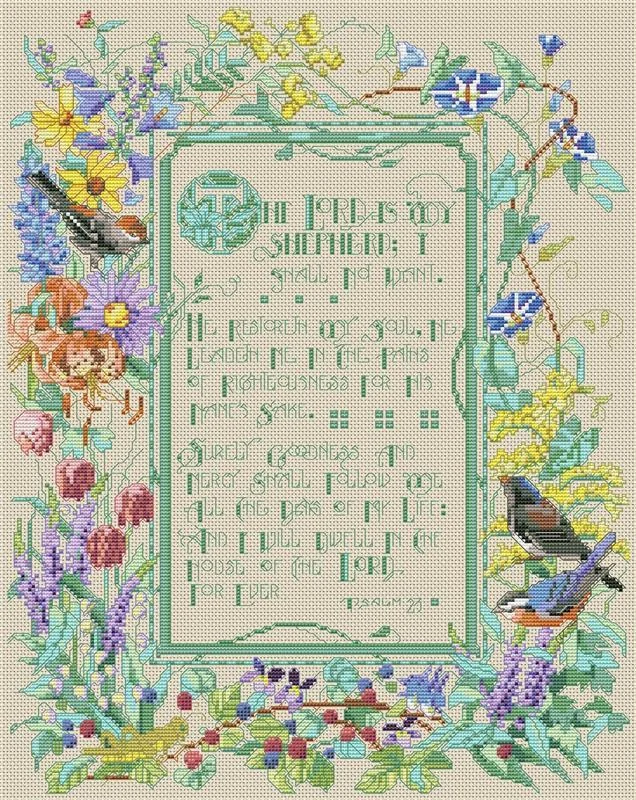 The Lord is my
Shepherd; I
shall not want.
He restoreth my soul, He
leadeth me in the paths
of righteousness for his
name's sake.
Surely Goodness and
Mercy shall follow me
all the days of my life:
and I will dwell in the
house of the Lord
for ever
Psalm 23